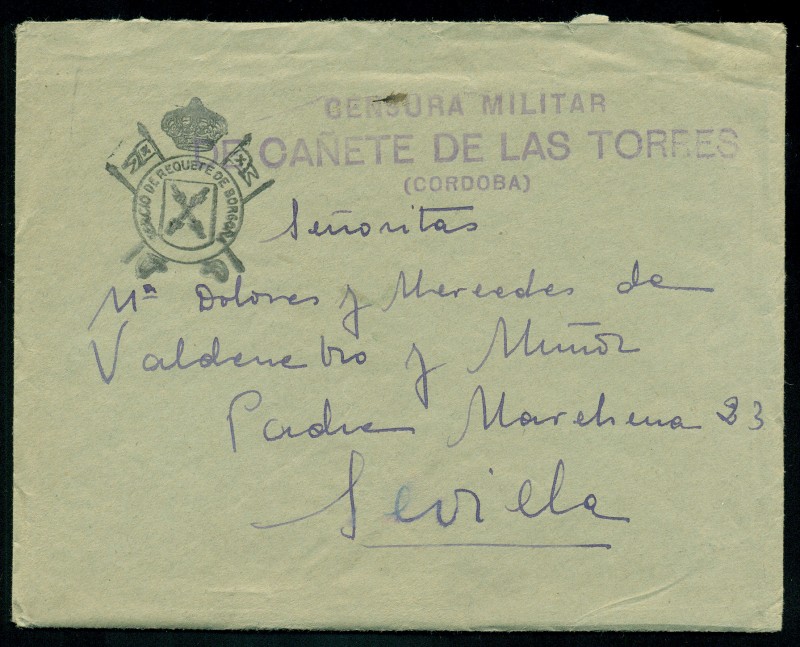 CENSURA MILITAR
DE CAÑETE DE LAS TORRES
(CORDOBA)
TERCIO DE REQUETE DE BORGOÑA
Señoritas
Mª Dolores y Mercedes de
Valdenebro y Muñoz
Padre Marchena 23
Sevilla